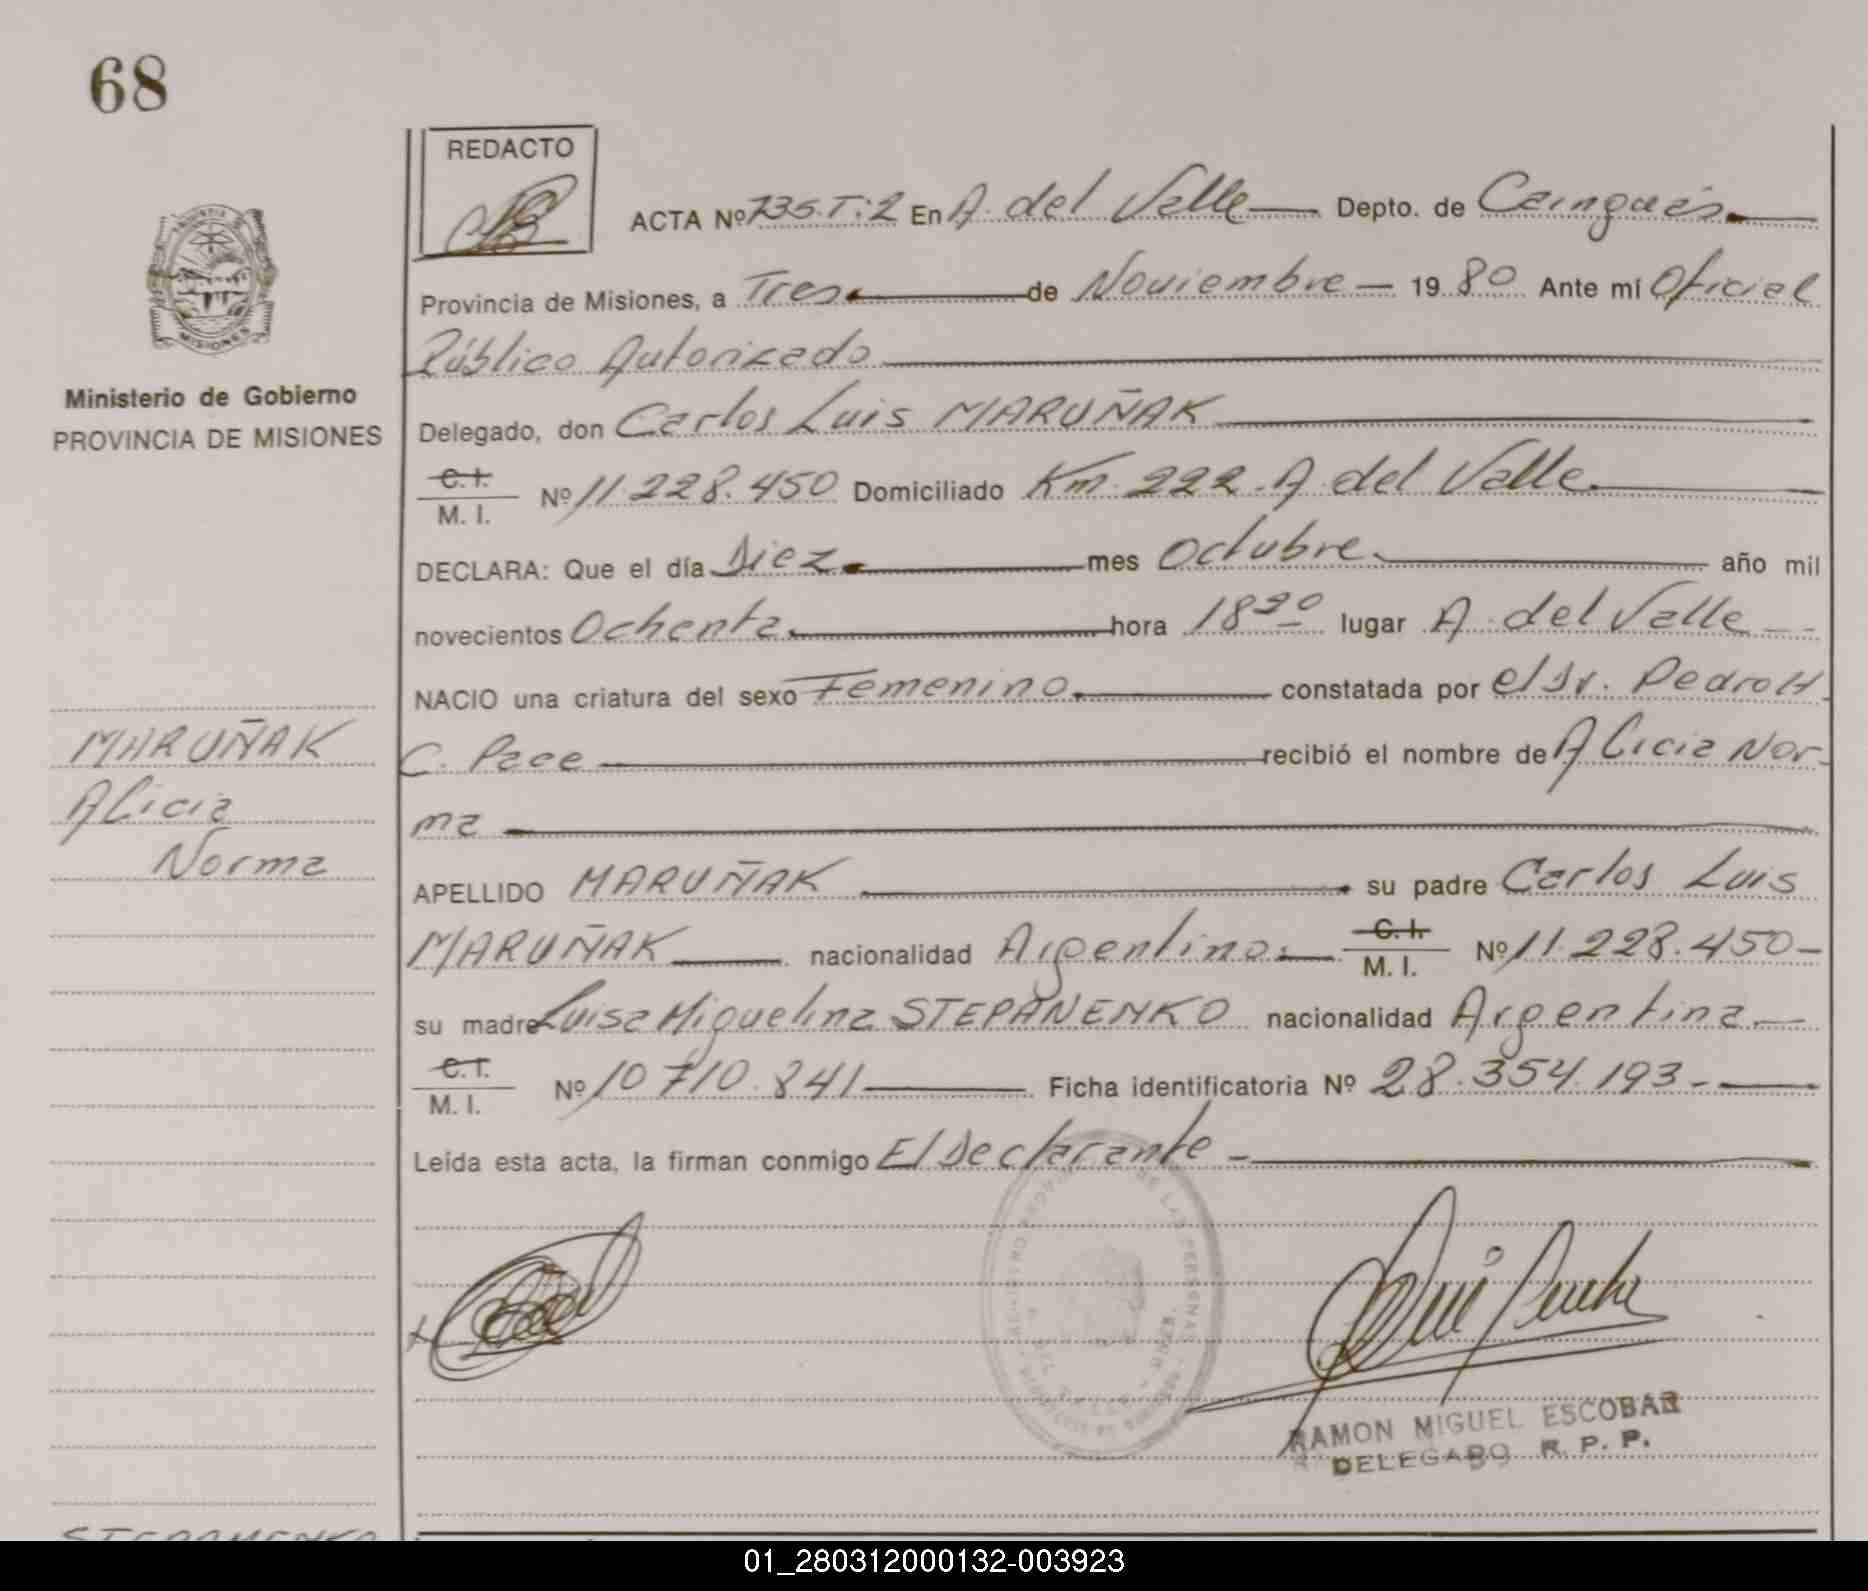 68
REDACTO
ACTA Nº 735.T:2 En A. del Valle Depto. de Cainguás
Provincia de Misiones, a Tres de Noviembre 19 80 Ante mí Oficial
Público Autorizado
Ministerio de Gobierno
PROVINCIA DE MISIONES
Delegado, don Carlos Luis MARUÑAK
C.I.
M. I. Nº 11.228.450 Domiciliado Km. 222. A. del Valle
DECLARA: Que el día Diez mes Octubre año mil
novecientos Ochenta hora lugar A. del Valle
NACIO una criatura del sexo Femenino constatada por el Dr. Pedro H
C. Pace recibió el nombre de Alicia Nor-
ma
MARUÑAK
Alicia
Norma
APELLIDO MARUÑAK su padre Carlos Luis
MARUÑAK nacionalidad Argentino C. I.
M. I. Nº 11.228.450
su madre Luisa Miguelina STEPANENKO nacionalidad Argentina
C.I.
M. I. Nº 10710.841 Ficha identificatoria Nº 28.354.193
Leída esta acta, la firman conmigo El Declarante
RAMON MIGUEL ESCOBAR
DELEGADO R. P. P.
STEPANENKO
01_280312000132-003923